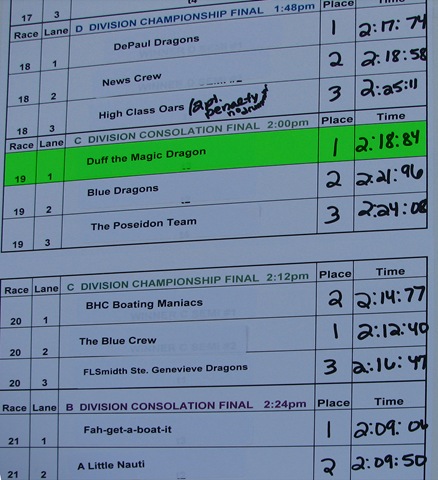 17 3
Race Lane D DIVISION CHAMPIONSHIP FINAL 1:48pm Place Time
18 1 DePaul Dragons 1 2:17:74
18 2 News Crew 2 2:18:58
18 3 High Class Oars (2 pt. penalty no drum) 3 2:25:11
Race Lane C DIVISION CONSOLATION FINAL 2:00pm Place Time
19 1 Duff the Magic Dragon 1 2:18:84
19 2 Blue Dragons 2 2:21:96
19 3 The Poseidon Team 3 2:24:08
Race Lane C DIVISION CHAMPIONSHIP FINAL 2:12pm Place Time
20 1 BHC Boating Maniacs 2 2:14:77
20 2 The Blue Crew 1 2:12:40
20 3 FLSmidth Ste. Genevieve Dragons 3 2:16:47
Race Lane B DIVISION CONSOLATION FINAL 2:24pm Place Time
21 1 Fah-get-a-boat-it 1 2:09:06
21 2 A Little Nauti 2 2:09:50